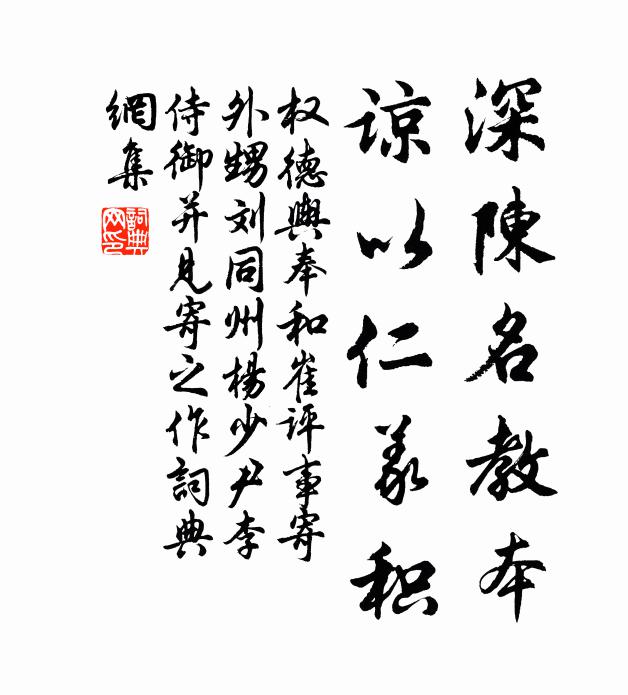 深陳名教本
谅以仁義积
权德輿奉和崔評事寄
外甥刘同州楊少尹李
侍御并見寄之作詞典
網集
詞典网印